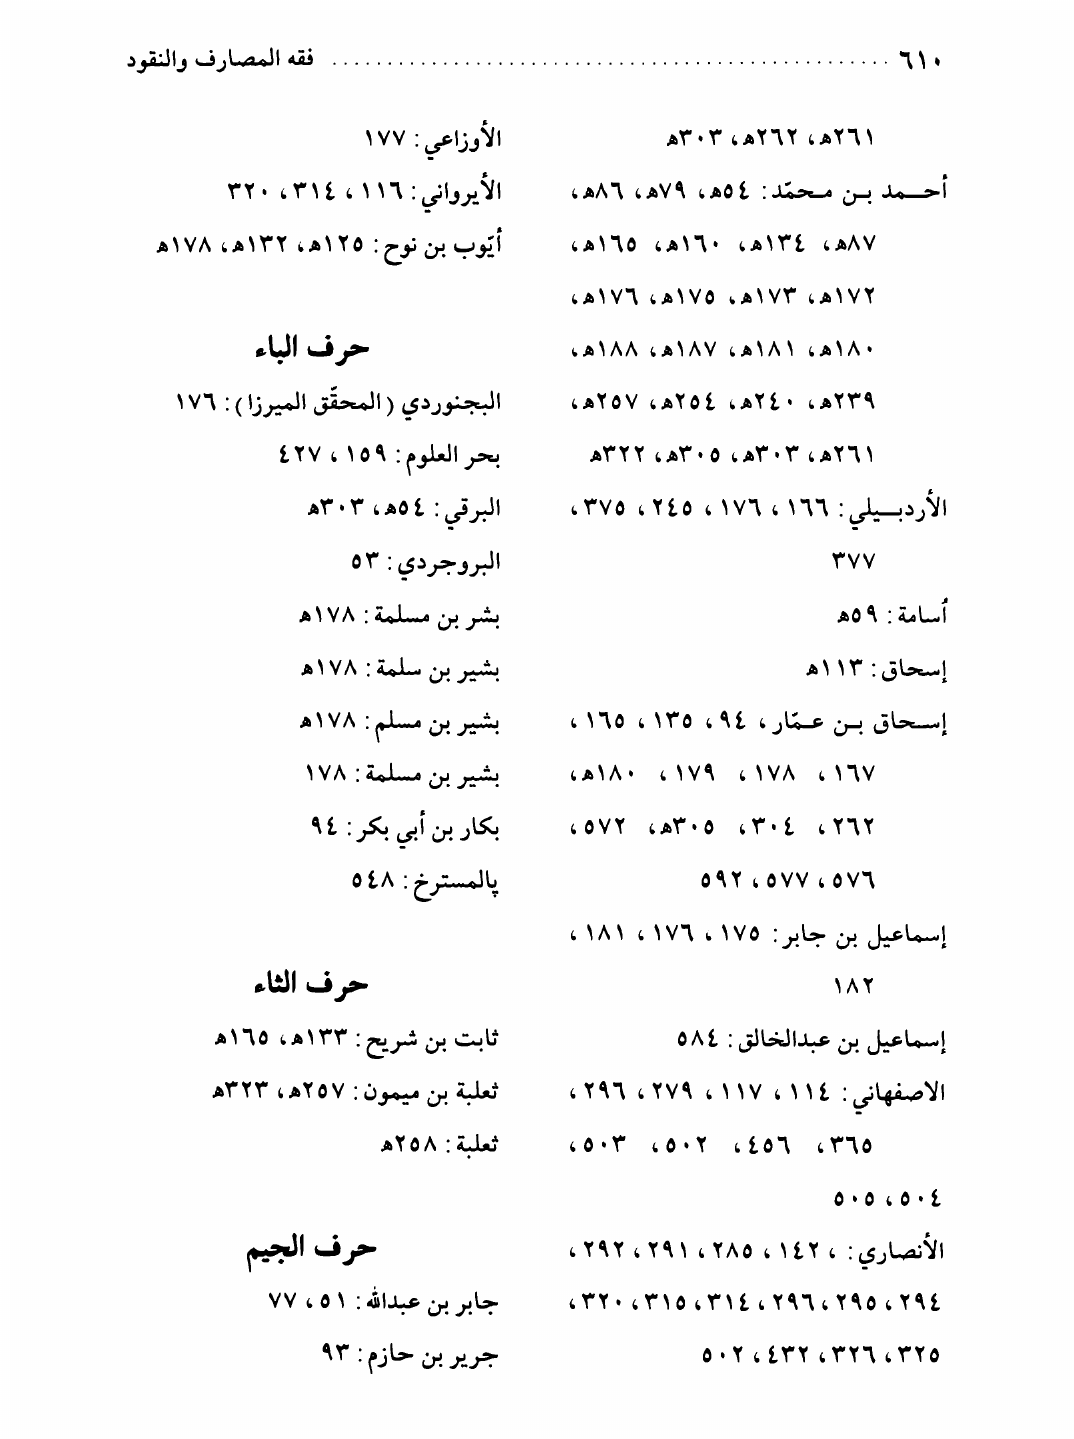 ٦١٠ ................................................ فقه المصارف والنقود
٢٦١ه‍، ٢٦٢ه‍، ٣٠٣ه‍
أحـمد بـن محمّد: ٥٤ه‍، ٧٩ه‍، ٨٦ه‍،
٨٧ه‍، ١٣٤ه‍، ١٦٠ه‍، ١٦٥ه‍،
١٧٢ه‍، ١٧٣ه‍، ١٧٥ه‍، ١٧٦ه‍،
١٨٠ه‍، ١٨١ه‍، ١٨٧ه‍، ١٨٨ه‍،
٢٣٩ه‍، ٢٤٠ه‍، ٢٥٤ه‍، ٢٥٧ه‍،
٢٦١ه‍، ٣٠٣ه‍، ٣٠٥ه‍، ٣٢٢ه‍
الأردبـيلي: ١٦٦، ١٧٦، ٢٤٥، ٣٧٥،
٣٧٧
أسامة: ٥٩ه‍
إسحاق: ١١٣ه‍
إسـحاق بـن عـمّار، ٩٤، ١٣٥، ١٦٥،
١٦٧، ١٧٨، ١٧٩، ١٨٠ه‍،
٢٦٢، ٣٠٤، ٣٠٥ه‍، ٥٧٢،
٥٧٦، ٥٧٧، ٥٩٢
إسماعيل بن جابر: ١٧٥، ١٧٦، ١٨١،
١٨٢
إسماعيل بن عبدالخالق: ٥٨٤
الاصفهاني: ١١٤، ١١٧، ٢٧٩، ٢٩٦،
٣٦٥، ٤٥٦، ٥٠٢، ٥٠٣،
٥٠٤، ٥٠٥
الأنصاري: ، ١٤٢، ٢٨٥، ٢٩١، ٢٩٢،
٢٩٤، ٢٩٥، ٢٩٦، ٣١٤، ٣١٥، ٣٢٠،
٣٢٥، ٣٢٦، ٤٣٢، ٥٠٢
الأوزاعي: ١٧٧
الأيرواني: ١١٦، ٣١٤، ٣٢٠
أيّوب بن نوح: ١٢٥ه‍، ١٣٢ه‍، ١٧٨ه‍
حرف الباء
البجنوردي (المحقّق الميرزا): ١٧٦
بحر العلوم: ١٥٩، ٤٢٧
البرقي: ٥٤ه‍، ٣٠٣ه‍
البروجردي: ٥٣
بشر بن مسلمة: ١٧٨ه‍
بشير بن سلمة: ١٧٨ه‍
بشير بن مسلم: ١٧٨ه‍
بشير بن مسلمة: ١٧٨
بكار بن أبي بكر: ٩٤
پالمسترخ: ٥٤٨
حرف الثاء
ثابت بن شريح: ١٣٣ه‍، ١٦٥ه‍
ثعلبة بن ميمون: ٢٥٧ه‍، ٣٢٣ه‍
ثعلبة: ٢٥٨ه‍
حرف الجيم
جابر بن عبدالله: ٥١، ٧٧
جرير بن حازم: ٩٣